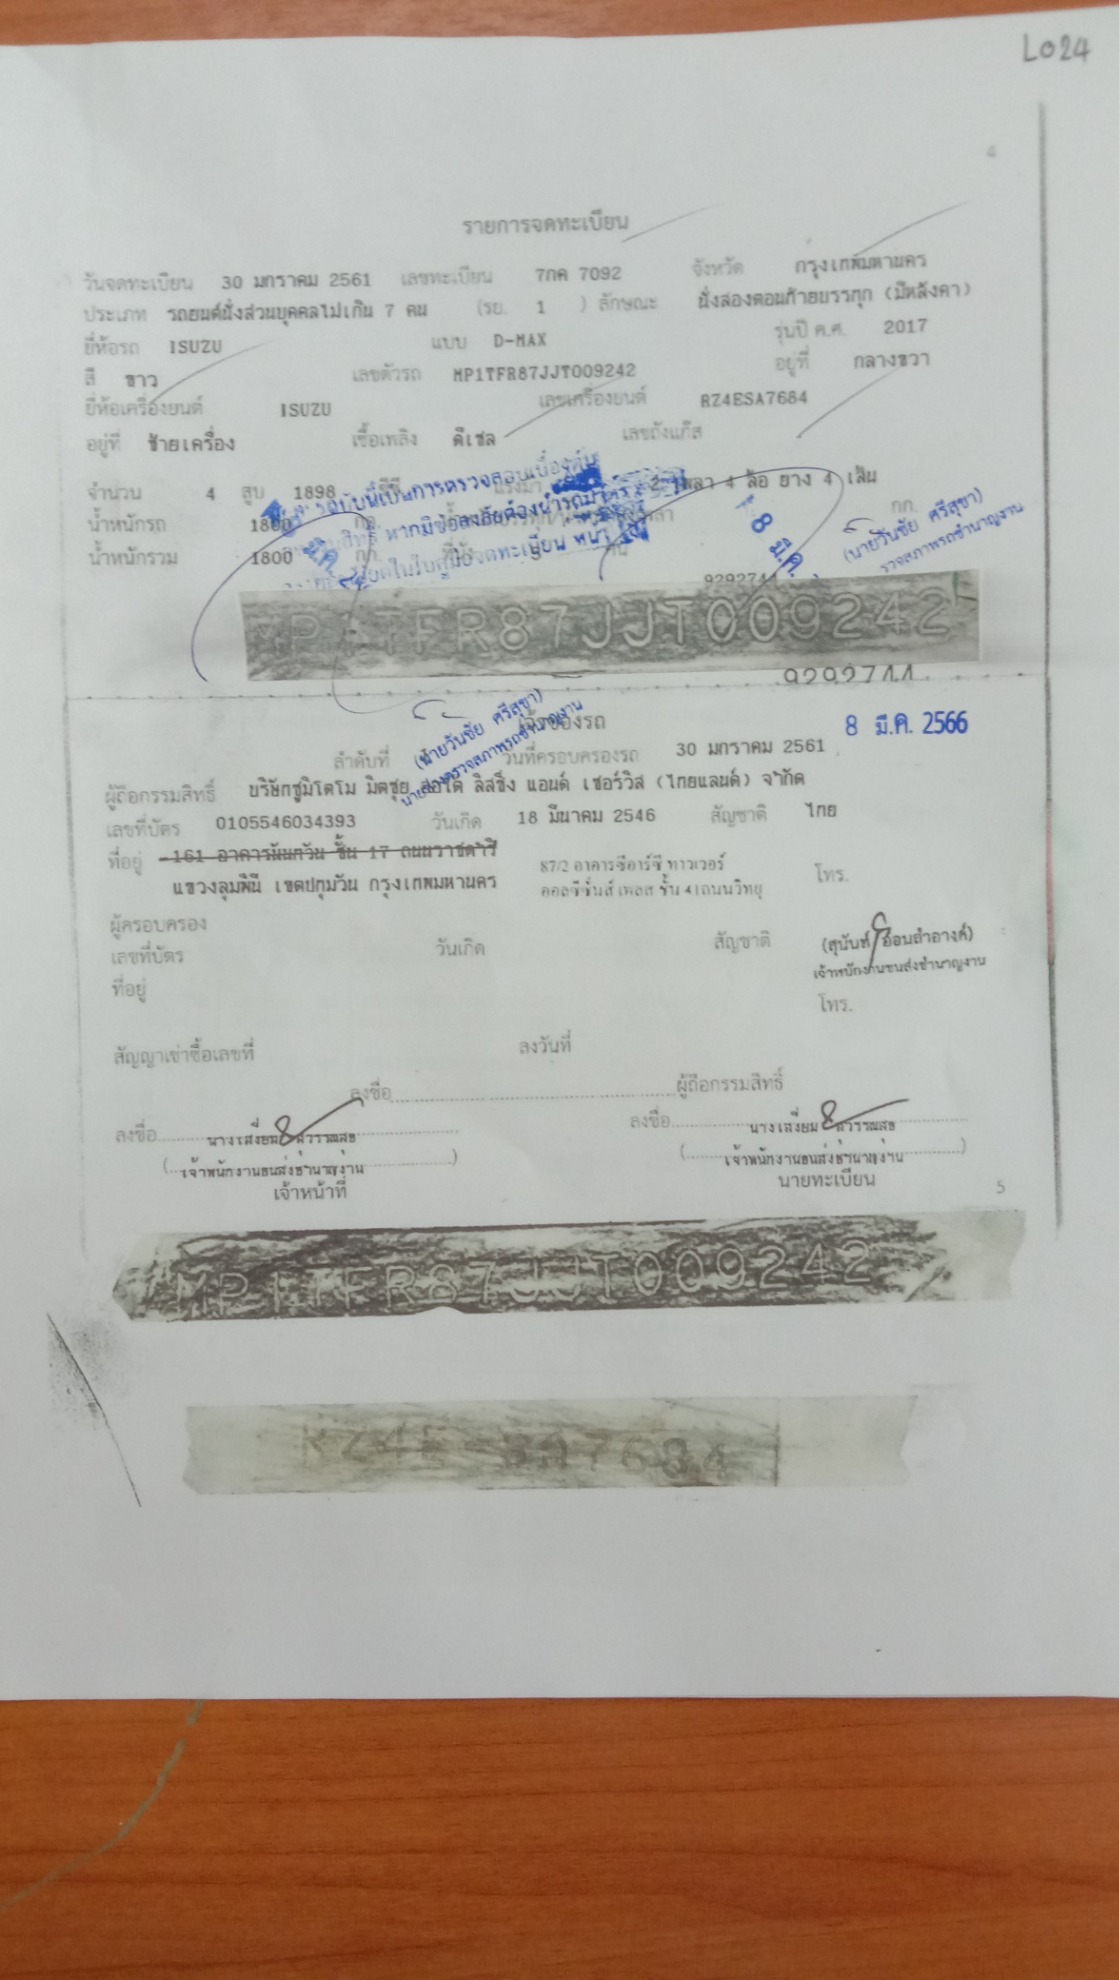 L024
4
รายการจดทะเบียน
วันจดทะเบียน 30 มกราคม 2561 เลขทะเบียน 7กค 7092 จังหวัด กรุงเทพมหานคร
ประเภท รถยนต์นั่งส่วนบุคคลไม่เกิน 7 คน (รย. 1 ) ลักษณะ นั่งสองตอนท้ายบรรทุก (มีหลังคา)
ยี่ห้อรถ ISUZU แบบ D-MAX รุ่นปี ค.ศ. 2017
สี ขาว เลขตัวรถ MP1TFR87JJT009242 อยู่ที่ กลางขวา
ยี่ห้อเครื่องยนต์ ISUZU เลขเครื่องยนต์ RZ4ESA7684
อยู่ที่ ซ้ายเครื่อง เชื้อเพลิง ดีเซล เลขถังแก๊ส
จำนวน 4 สูบ 1898 ซีซี 2 เพลา 4 ล้อ ยาง 4 เส้น
น้ำหนักรถ 1800 กก. กก.
น้ำหนักรวม 1800 กก. ที่นั่ง
8 มี.ค.
(นายวันชัย ศรีสุขา)
9292744
MP1TFR87JJT009242
9292744
เจ้าของรถ
8 มี.ค. 2566
(นายวันชัย ศรีสุขา)
ลำดับที่ วันที่ครอบครองรถ 30 มกราคม 2561
ผู้ถือกรรมสิทธิ์ บริษัทซูมิโตโม มิตซุย ออโต้ ลิสซิ่ง แอนด์ เซอร์วิส (ไทยแลนด์) จำกัด
เลขที่บัตร 0105546034393 วันเกิด 18 มีนาคม 2546 สัญชาติ ไทย
ที่อยู่ 161 อาคารนันทวัน ชั้น 17 ถนนราชดำริ 87/2 อาคารซีอาร์ซี ทาวเวอร์ โทร.
แขวงลุมพินี เขตปทุมวัน กรุงเทพมหานคร ออลซีซั่นส์ เพลส ชั้น 41 ถนนวิทยุ
ผู้ครอบครอง
เลขที่บัตร วันเกิด สัญชาติ (สุนันท์ อ่อนลำอางค์)
เจ้าพนักงานขนส่งชำนาญงาน
ที่อยู่ โทร.
สัญญาเช่าซื้อเลขที่ ลงวันที่
ลงชื่อ ผู้ถือกรรมสิทธิ์
ลงชื่อ นางเสงี่ยม สุวรรณสุข ลงชื่อ นางเสงี่ยม สุวรรณสุข
(เจ้าพนักงานขนส่งชำนาญงาน) (เจ้าพนักงานขนส่งชำนาญงาน)
เจ้าหน้าที่ นายทะเบียน
5
MP1TFR87JJT009242
RZ4E SA7684